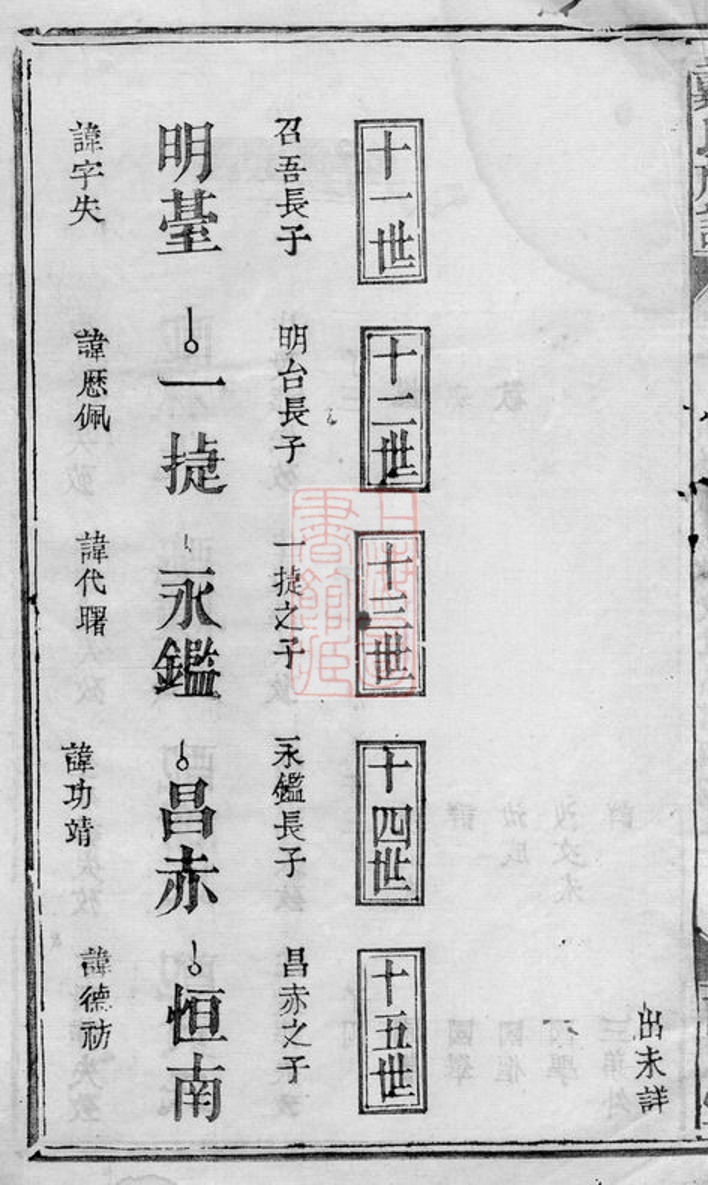 出未詳
十一世
召吾長子
明䑓
諱字失
十二世
明台長子
一捷
諱歷佩
十三世
一捷之子
永鑑
諱代曙
十四世
永鑑長子
昌赤
諱功靖
十五世
昌赤之子
恒南
諱德祊